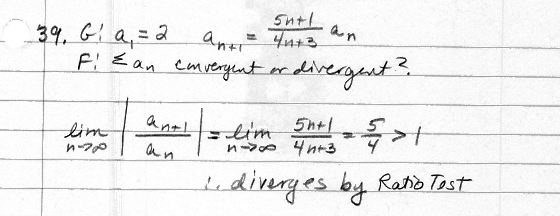 39. G: a₁ = 2 aₙ₊₁ = (5n+1)/(4n+3) aₙ
F: Σ aₙ convergent or divergent?
lim n→∞ |aₙ₊₁/aₙ| = lim n→∞ (5n+1)/(4n+3) = 5/4 > 1
∴ diverges by Ratio Test